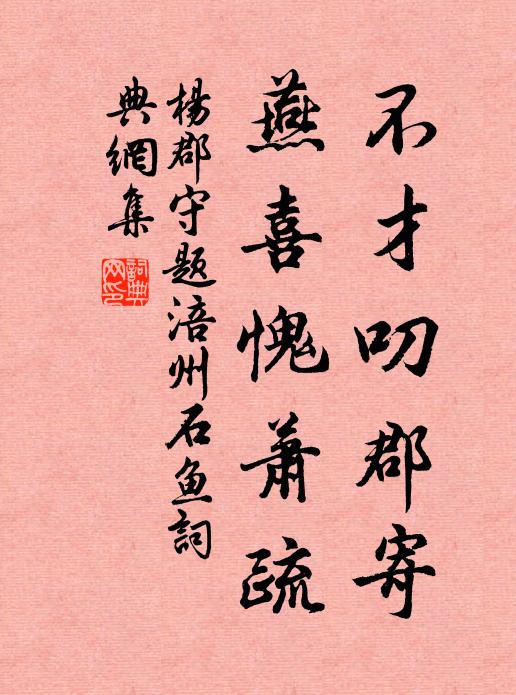 不才叨郡寄
燕喜愧萧疏
楊郡守题涪州石鱼詞
典網集
詞典網印